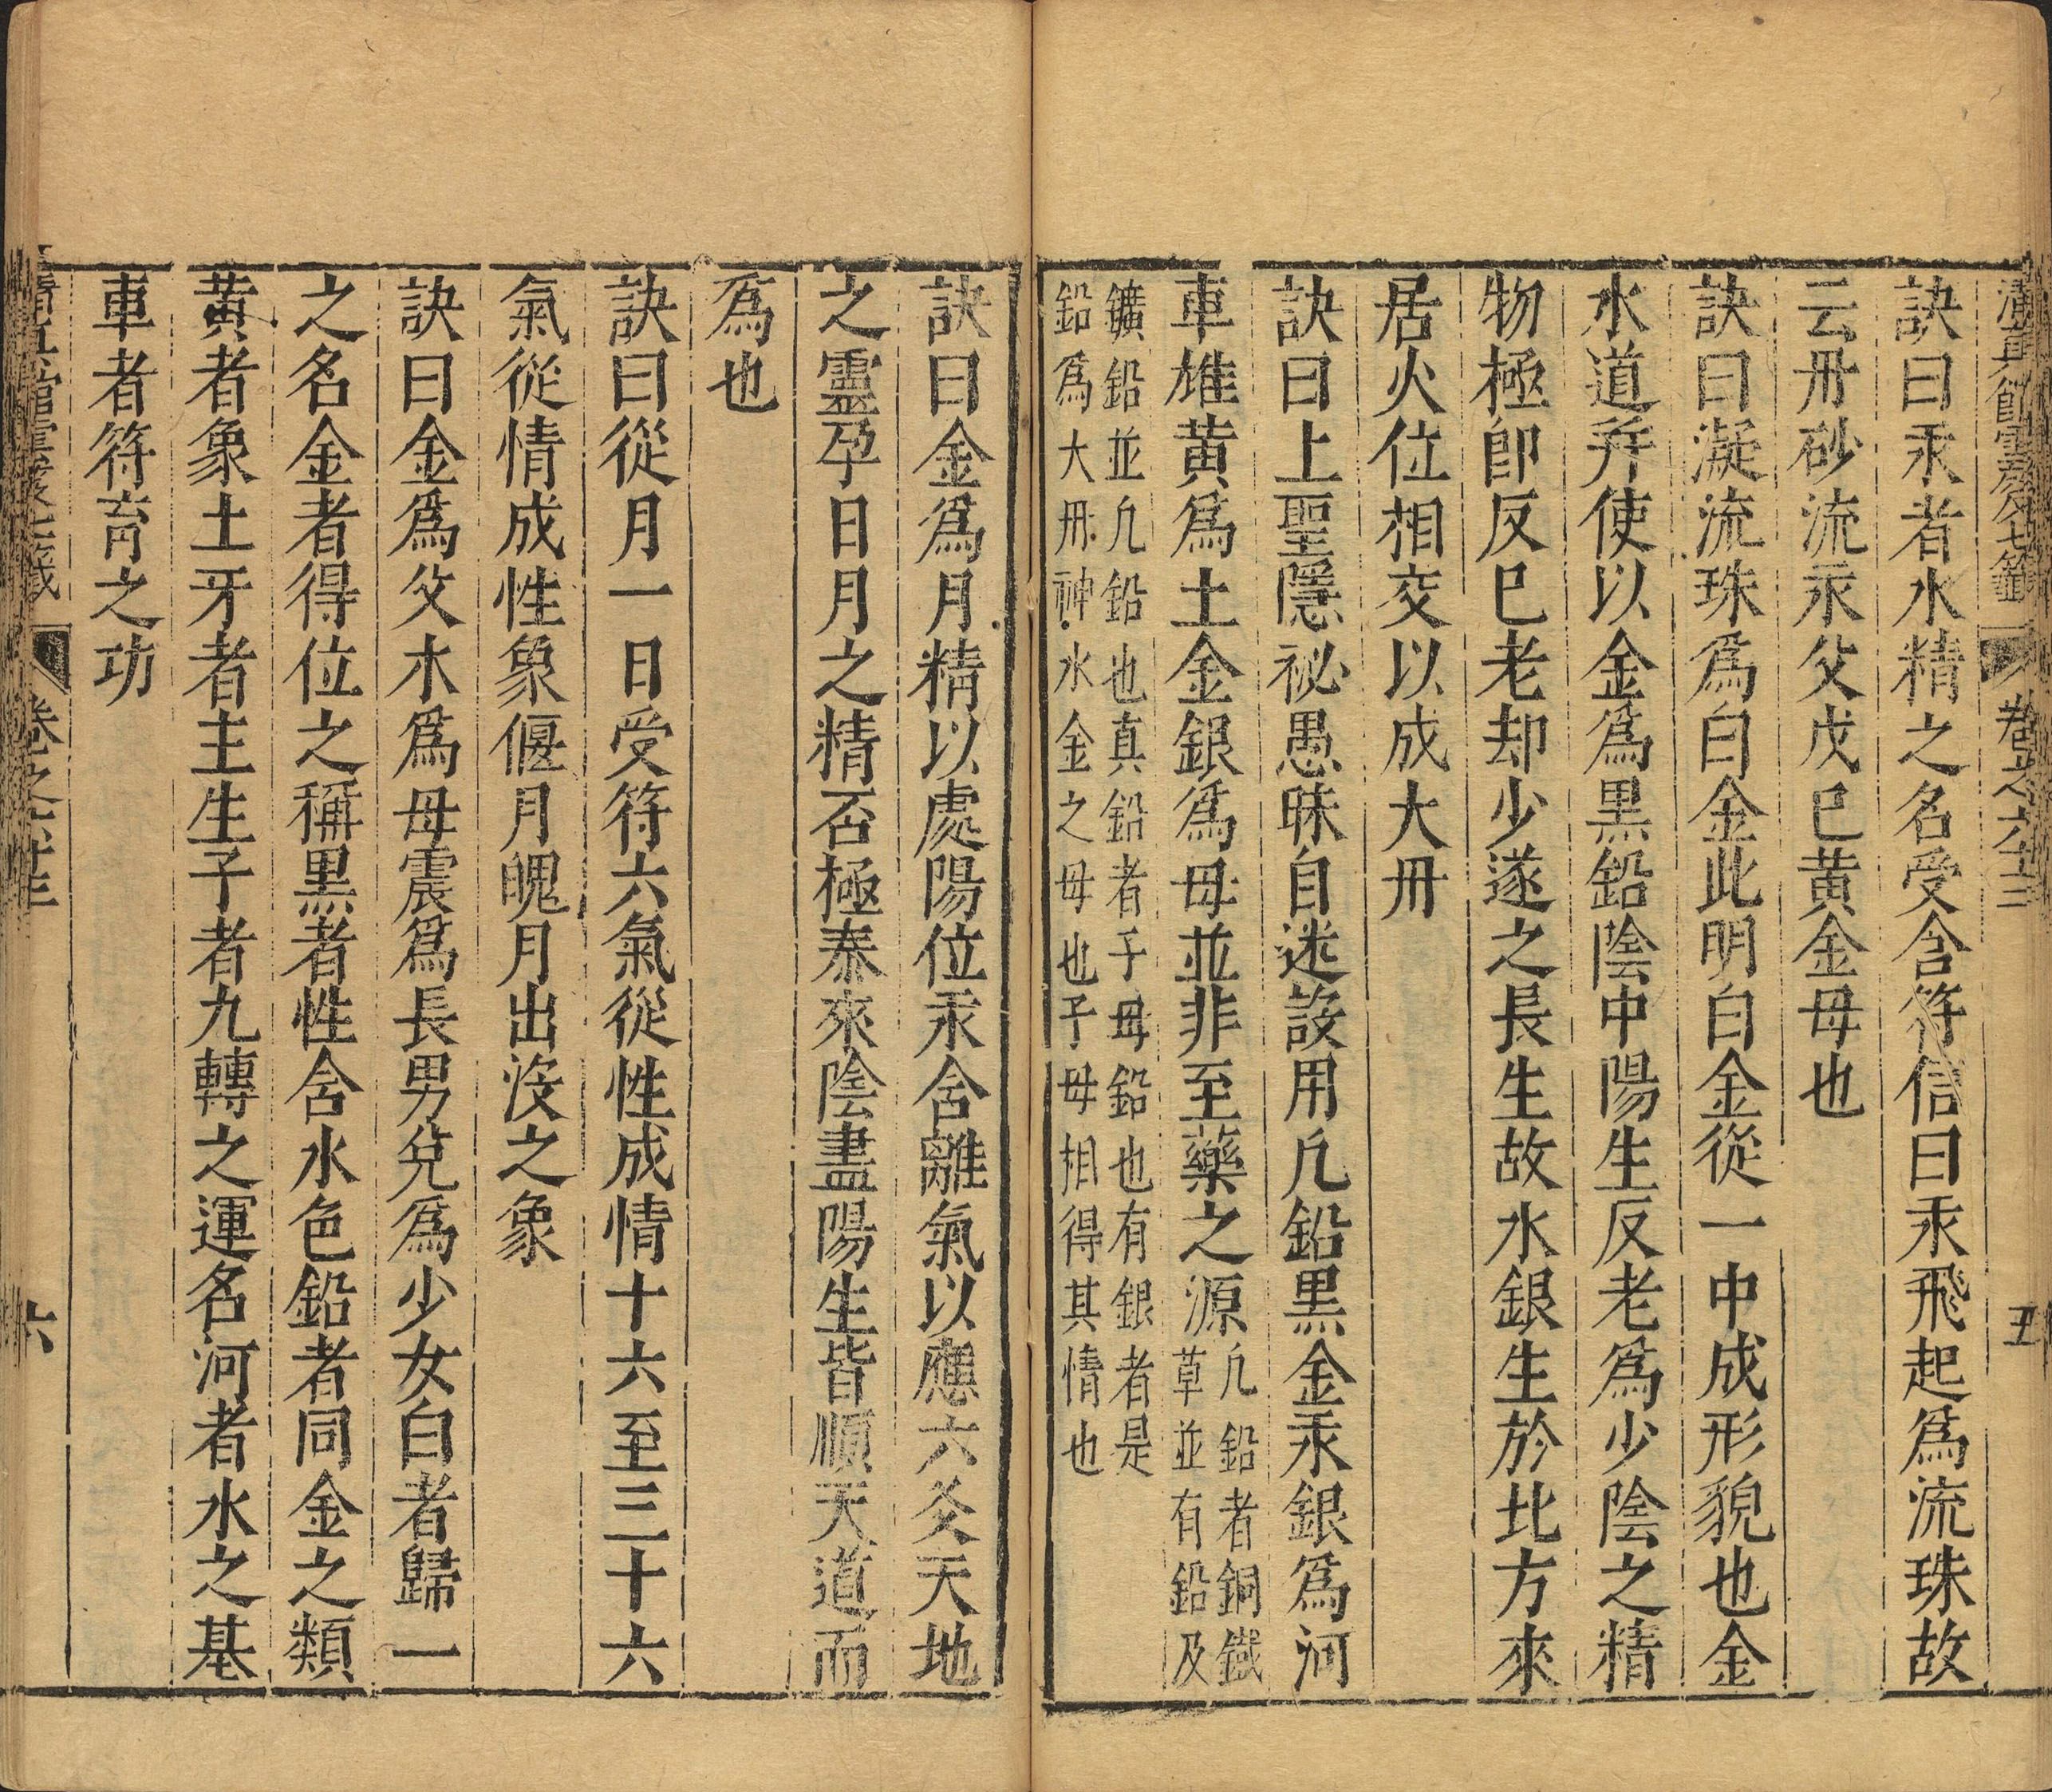 清真館雲笈七籤 卷之六十三 五
訣曰汞者水精之名受含符信曰汞飛起爲流珠故
云丹砂流汞父戊己黃金母也
訣曰凝流珠爲白金此明白金從一中成形貌也金
水道并使以金爲黑鉛陰中陽生反老爲少陰之精
物極卽反已老却少遂之長生故水銀生於北方來
居火位相交以成大丹
訣曰上聖隱祕愚昧自迷設用凡鉛黑金汞銀爲河
車雄黃爲土金銀爲母並非至藥之源凡鉛者銅鐵草並有鉛及
鑛鉛並凡鉛也真鉛者子母鉛也有銀者是
鉛爲大丹神水金之母也子母相得其情也
訣曰金爲月精以處陽位汞含離氣以應六爻天地
之靈孕日月之精否極泰來陰盡陽生皆順天道而
爲也
訣曰從月一日受符六氣從性成情十六至三十六
氣從情成性象偃月魄月出沒之象
訣曰金爲父木爲母震爲長男兌爲少女白者歸一
之名金者得位之稱黑者性含水色鉛者同金之類
黃者象土牙者主生子者九轉之運名河者水之基
車者符育之功
清真館雲笈七籤 卷之六十三 六